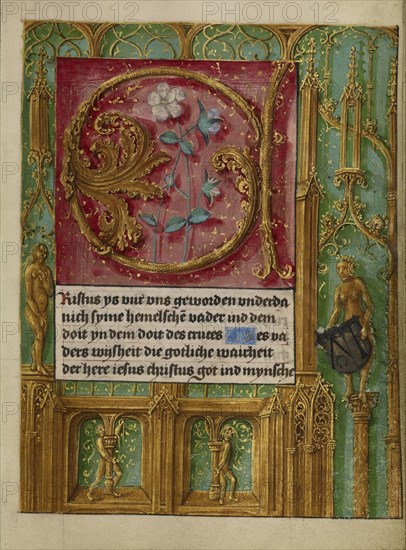 Ristus ys vur vns geworden vnderda
nich syme hemelsche vader ind dem
doit yndem doit des cruces es va
ders wijsheit die gotliche wairheit
der here iesus christus got ind mynsche